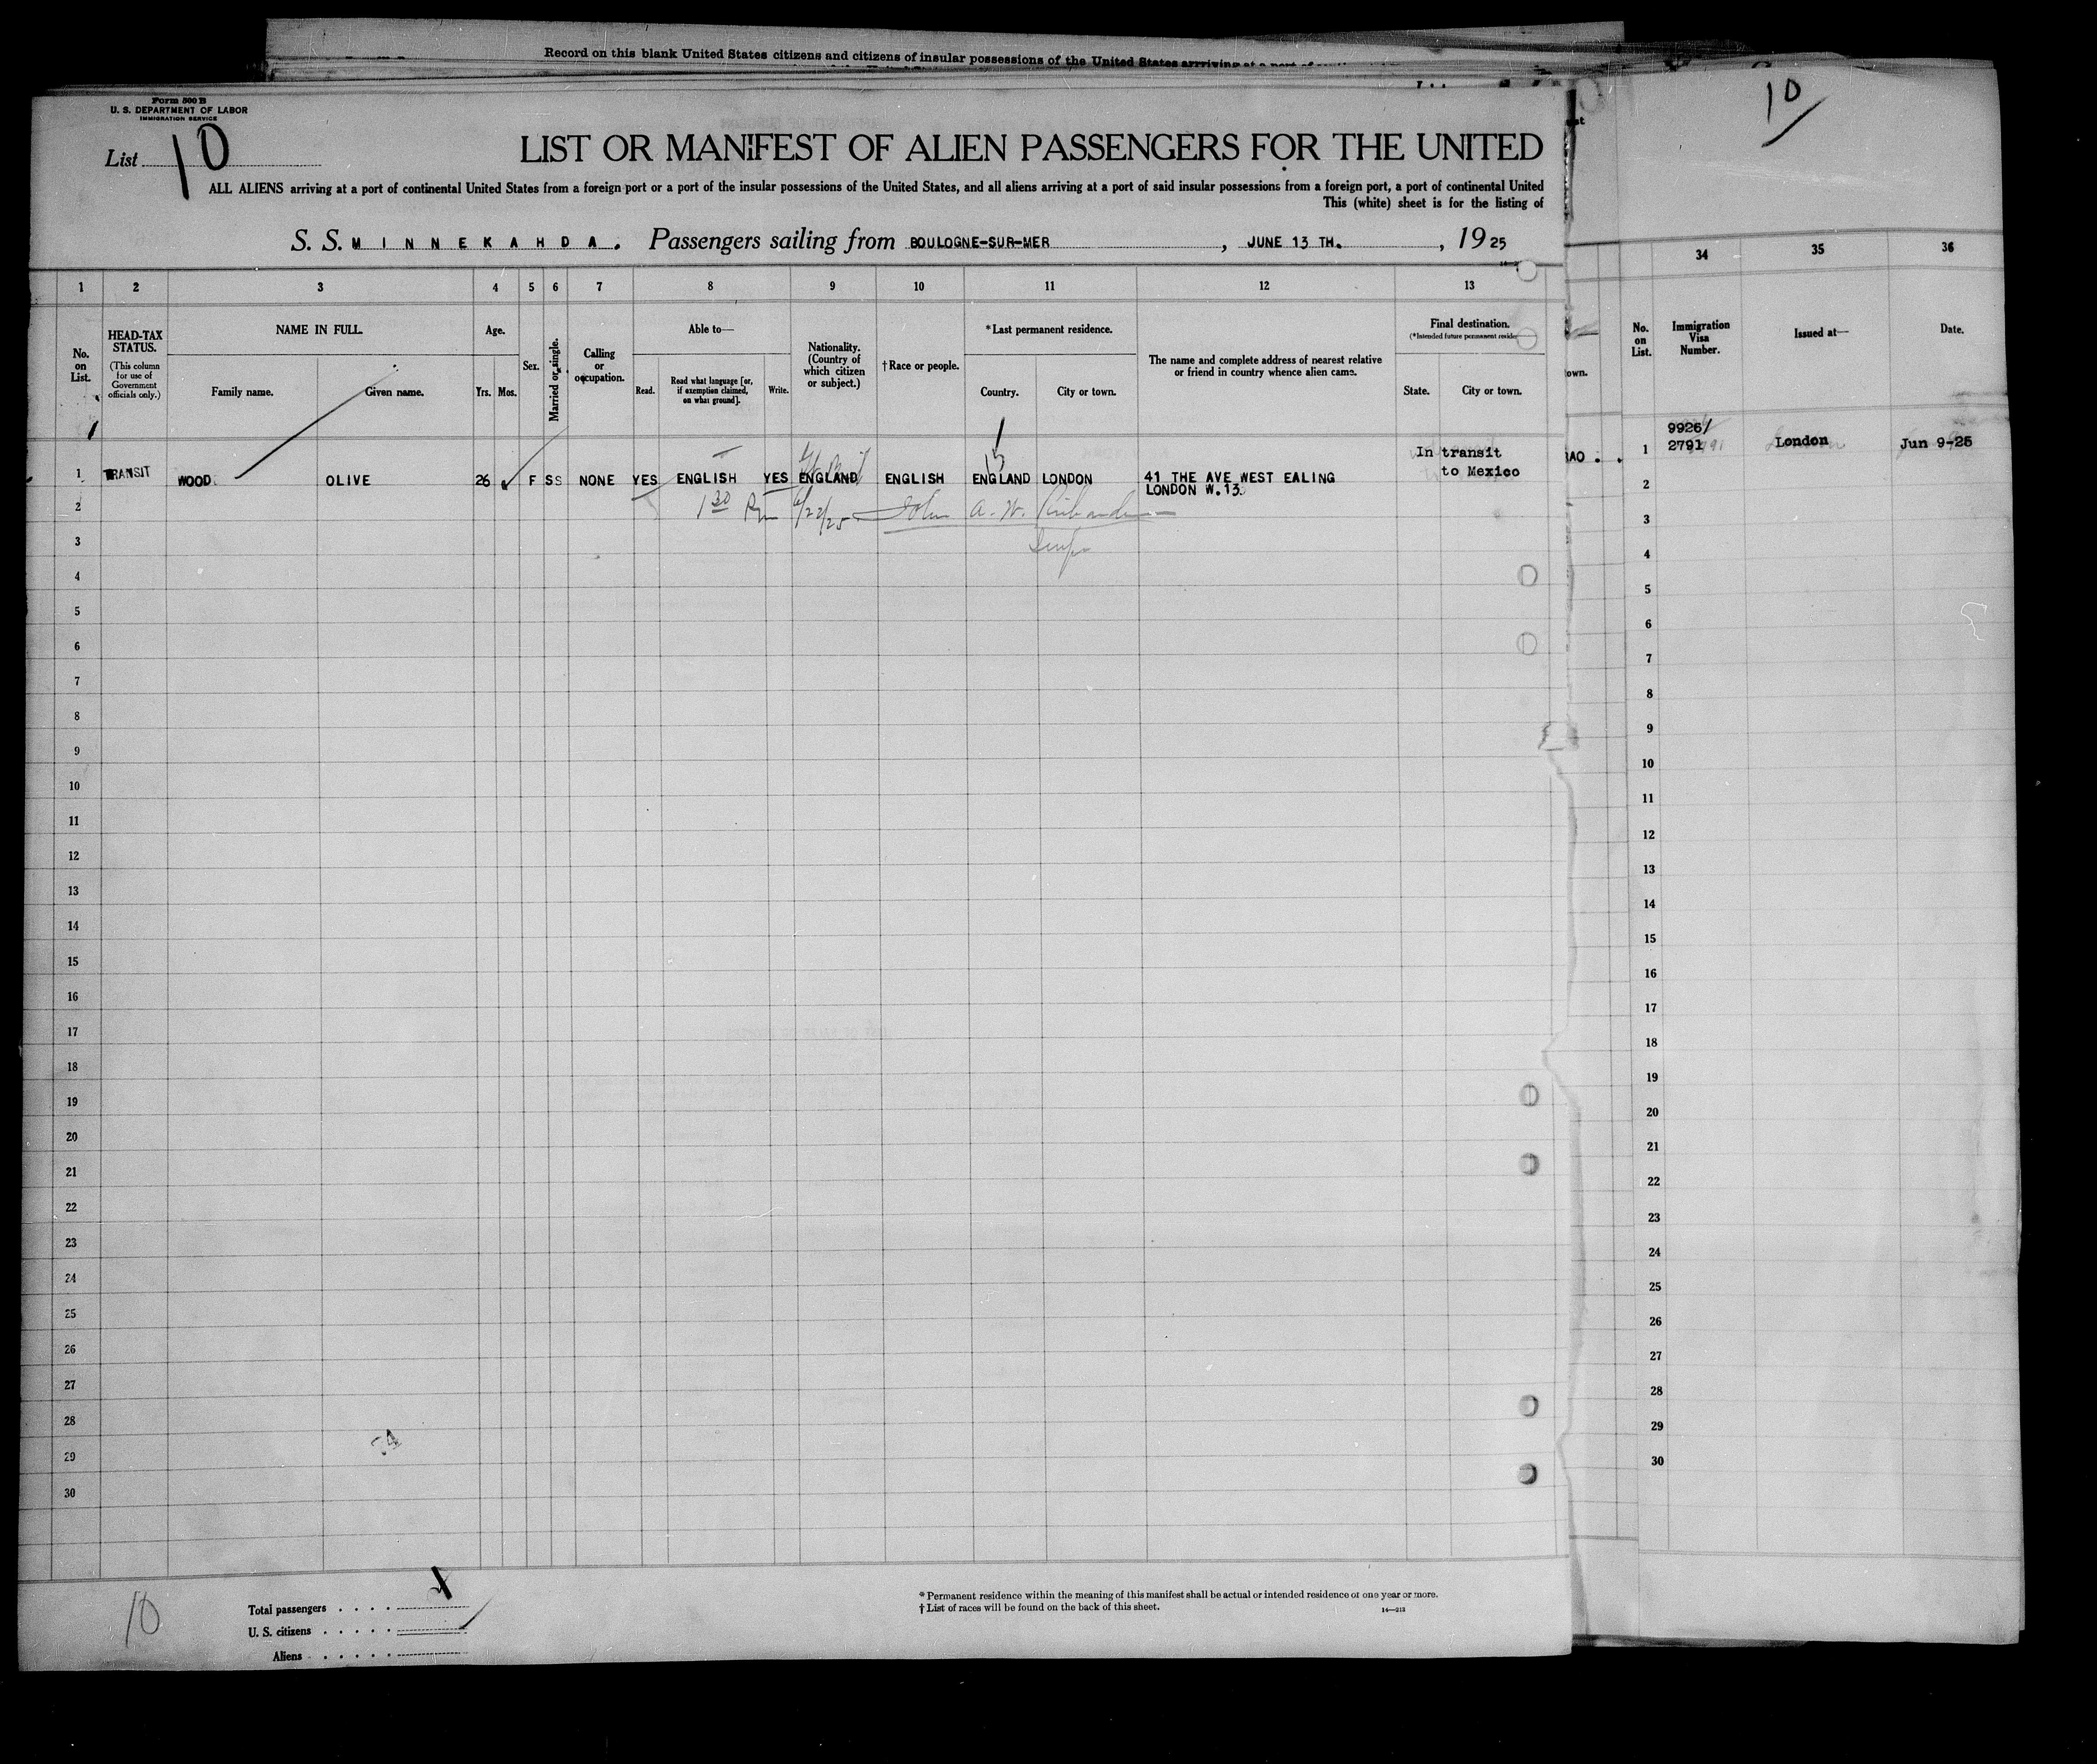 Record on this blank United States citizens and citizens of insular possessions of the United States arriving at a port of
Form 500 B
U. S. DEPARTMENT OF LABOR
IMMIGRATION SERVICE
List 10
LIST OR MANIFEST OF ALIEN PASSENGERS FOR THE UNITED
ALL ALIENS arriving at a port of continental United States from a foreign port or a port of the insular possessions of the United States, and all aliens arriving at a port of said insular possessions from a foreign port, a port of continental United
This (white) sheet is for the listing of
S. S. MINNEKAHDA. Passengers sailing from BOULOGNE-SUR-MER, JUNE 13 TH., 1925
1 2 3 4 5 6 7 8 9 10 11 12 13
No. on List.
HEAD-TAX STATUS.
(This column for use of Government officials only.)
NAME IN FULL.
Family name. Given name.
Age.
Yrs. Mos.
Sex.
Married or single.
Calling or occupation.
Able to—
Read. Read what language [or, if exemption claimed, on what ground]. Write.
Nationality. (Country of which citizen or subject.)
† Race or people.
* Last permanent residence.
Country. City or town.
The name and complete address of nearest relative or friend in country whence alien came.
Final destination.
(*Intended future permanent
State. City or town.
1 TRANSIT WOOD OLIVE 26 F SS NONE YES ENGLISH YES ENGLAND ENGLISH ENGLAND LONDON 41 THE AVE WEST EALING
LONDON W.13.
In transit
to Mexico
1 30 Pm 6/22/25 John A. W.
2
3
4
5
6
7
8
9
10
11
12
13
14
15
16
17
18
19
20
21
22
23
24
25
26
27
28
29
30
10
Total passengers
U. S. citizens
Aliens
* Permanent residence within the meaning of this manifest shall be actual or intended residence of one year or more.
† List of races will be found on the back of this sheet.
14—212
10
34 35 36
own.
No. on List.
Immigration Visa Number.
Issued at—
Date.
RAO .
1 9926/
2791 London Jun 9-25
2
3
4
5
6
7
8
9
10
11
12
13
14
15
16
17
18
19
20
21
22
23
24
25
26
27
28
29
30